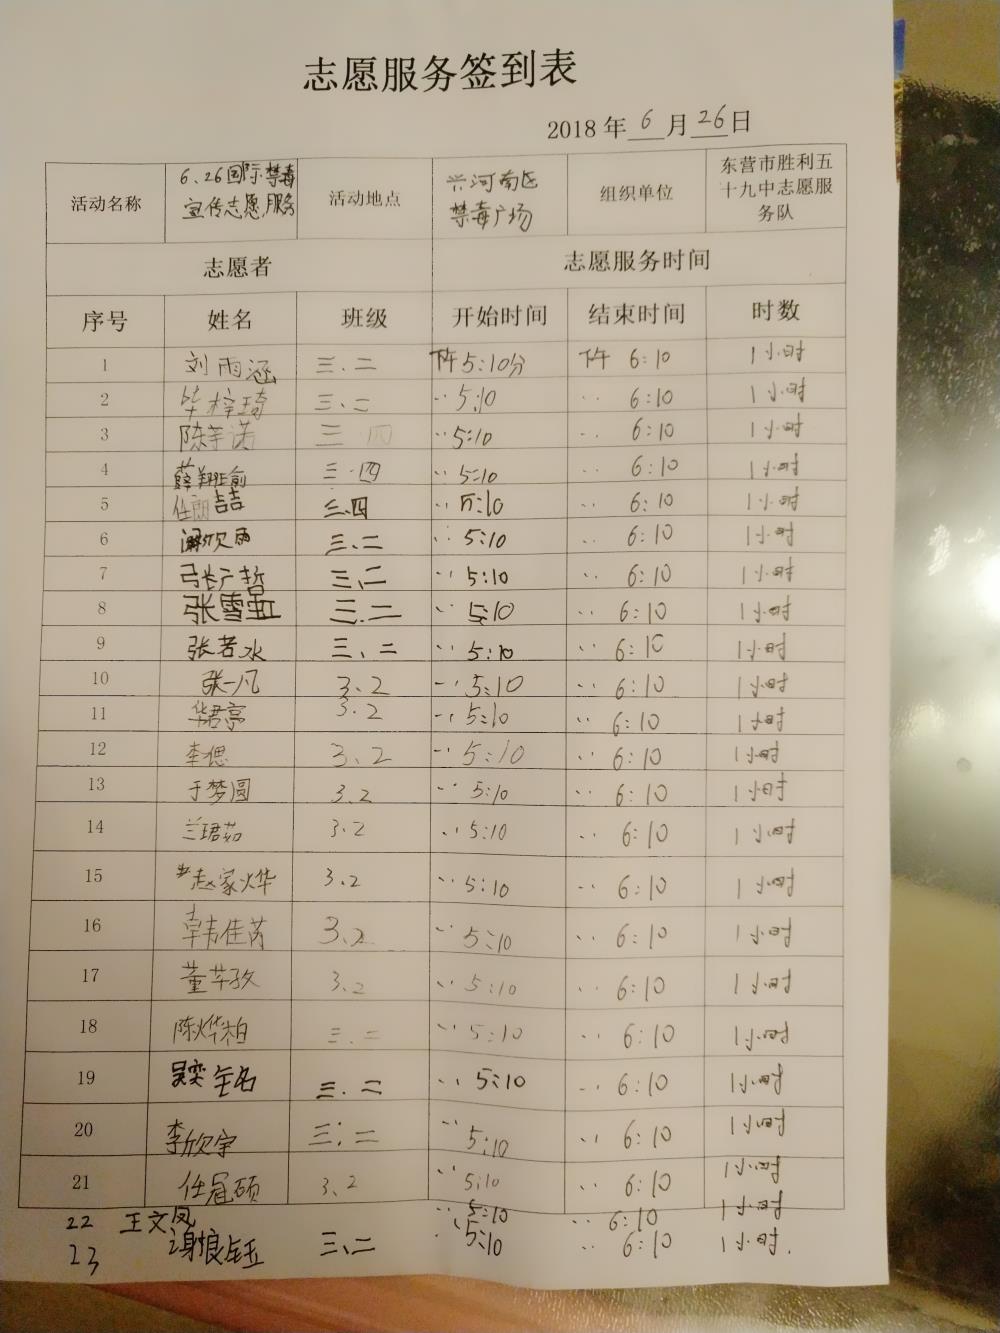 志愿服务签到表
2018 年 6 月 26 日
活动名称 6.26国际禁毒宣传志愿服务 活动地点 兴河南区禁毒广场 组织单位 东营市胜利五十九中志愿服务队
志愿者 志愿服务时间
序号 姓名 班级 开始时间 结束时间 时数
1 刘雨涵 三.二 下午5:10分 下午 6:10 1小时
2 毕梓琦 三、二 ·· 5:10 ·· 6:10 1小时
3 陈芋诺 三 四 ·· 5:10 ·· 6:10 1小时
4 薛翔瑜 三·四 ·· 5:10 ·· 6:10 1小时
5 任朗喆 三.四 ·· 5:10 ·· 6:10 1小时
6 欣雨 三、二 ·· 5:10 ·· 6:10 1小时
7 张广哲 三、二 ·· 5:10 ·· 6:10 1小时
8 张雪 三.二 ·· 5:10 ·· 6:10 1小时
9 张若水 三、二 ·· 5:10 ·· 6:10 1小时
10 张一凡 3.2 ·· 5:10 ·· 6:10 1小时
11 华君亭 3.2 ·· 5:10 ·· 6:10 1小时
12 李偲 3.2 ·· 5:10 ·· 6:10 1小时
13 于梦圆 3.2 ·· 5:10 ·· 6:10 1小时
14 兰珺茹 3.2 ·· 5:10 ·· 6:10 1小时
15 赵家烨 3.2 ·· 5:10 ·· 6:10 1小时
16 韩佳芮 3.2 ·· 5:10 ·· 6:10 1小时
17 董芊孜 3.2 ·· 5:10 ·· 6:10 1小时
18 陈烨柏 三.二 ·· 5:10 ·· 6:10 1小时
19 吴奕铭 三.二 ·· 5:10 ·· 6:10 1小时
20 李欣宇 三.二 ·· 5:10 ·· 6:10 1小时
21 任冠硕 3.2 ·· 5:10 ·· 6:10 1小时
22 王文凤 ·· 5:10 ·· 6:10 1小时
23 谢恨钰 三、二 ·· 5:10 ·· 6:10 1小时.